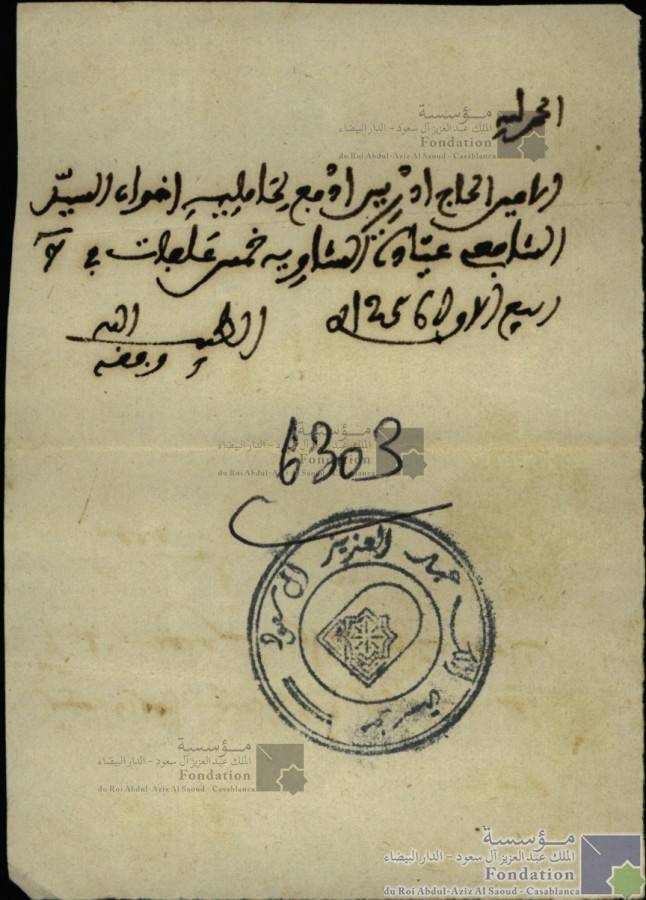 الحمد لله
الامين الحاج ادريس ادفع لحامليه اخوان السيد
الشافعي عياد الشاوية خمس في
ربيع الاول عام
الطيب
وفقه الله
مؤسسة
الملك عبد العزيز آل سعود - الدار البيضاء
Fondation
du Roi Abdul-Aziz Al Saoud - Casablanca
مؤسسة
الملك عبد العزيز آل سعود - الدار البيضاء
Fondation
du Roi Abdul-Aziz Al Saoud - Casablanca
6303
مؤسسة الملك عبد العزيز آل سعود
مؤسسة
الملك عبد العزيز آل سعود - الدار البيضاء
Fondation
du Roi Abdul-Aziz Al Saoud - Casablanca
مؤسسة
الملك عبد العزيز آل سعود - الدار البيضاء
Fondation
du Roi Abdul-Aziz Al Saoud - Casablanca